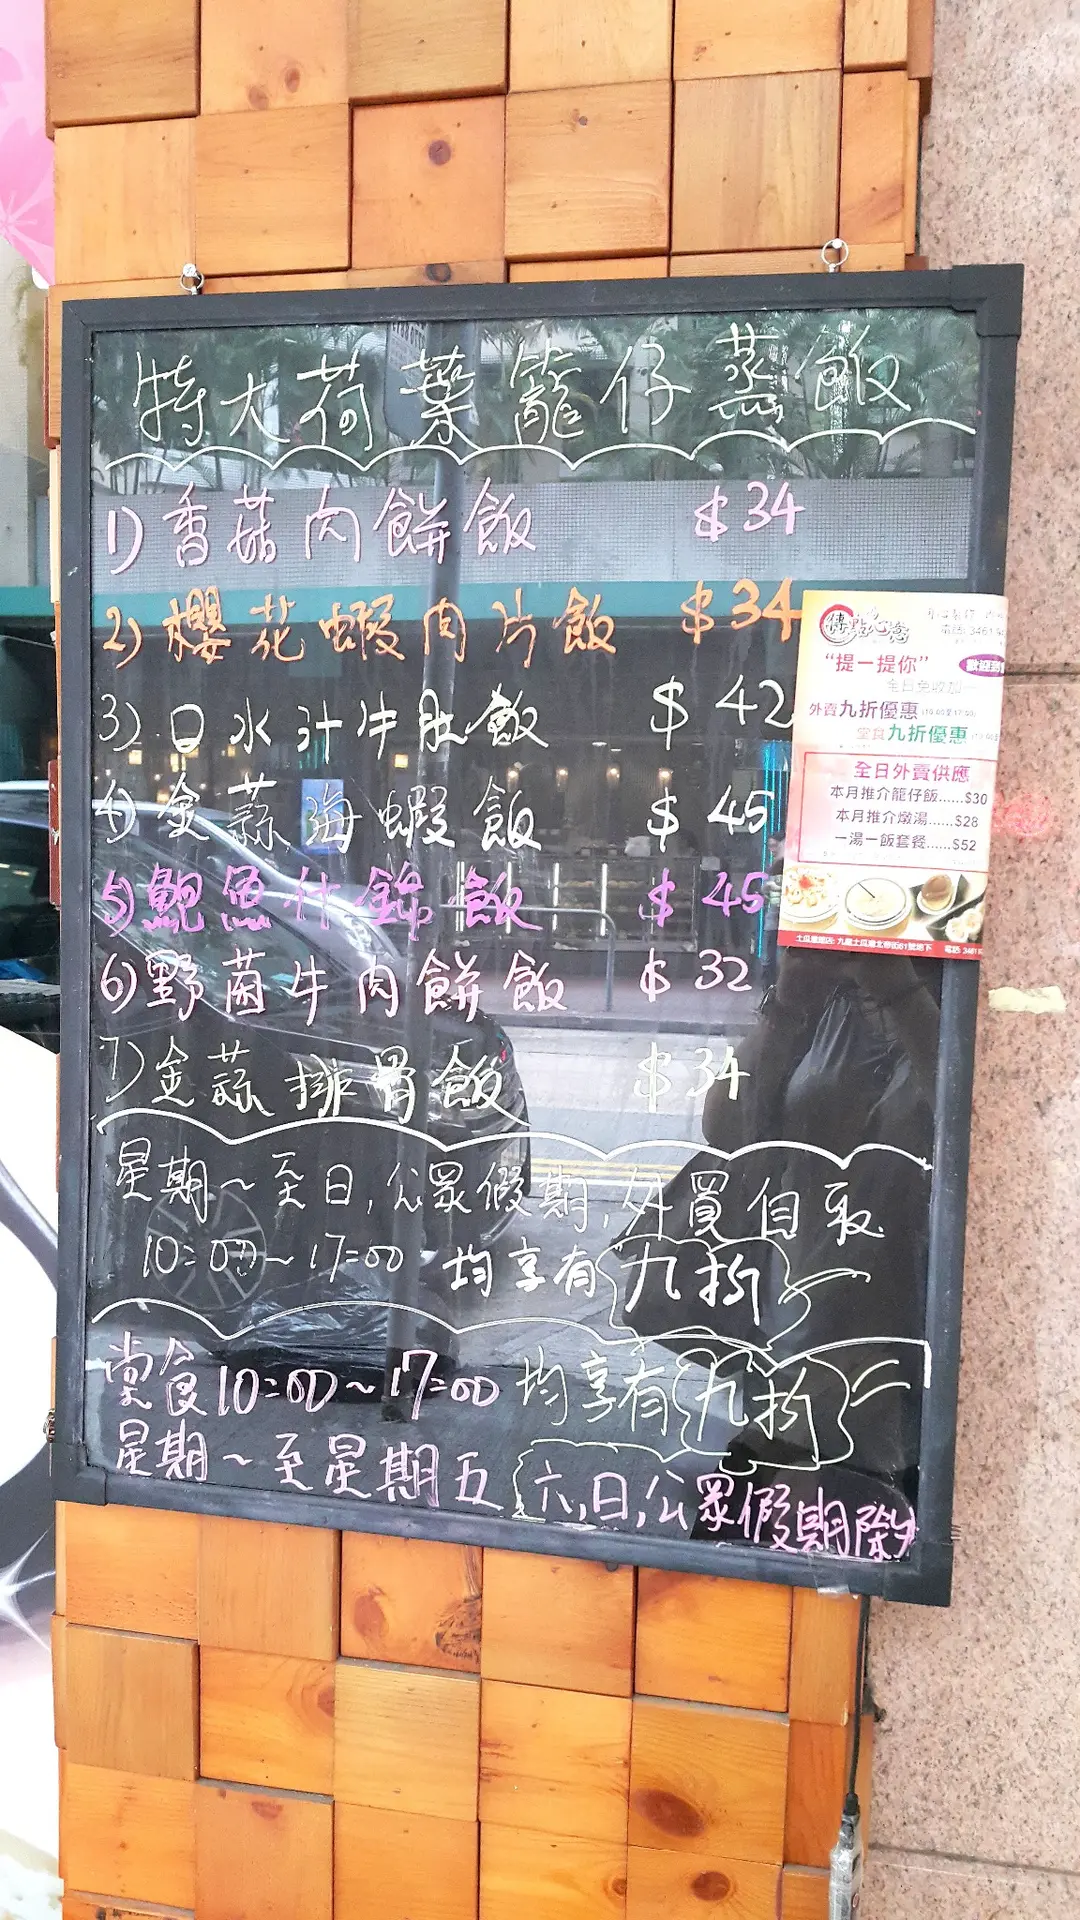 特大荷葉籠仔蒸飯
1) 香菇肉餅飯 $34
2) 櫻花蝦肉片飯 $34
3) 口水汁牛肚飯 $42
4) 金蒜海蝦飯 $45
5) 鮑魚什錦飯 $45
6) 野菌牛肉餅飯 $32
7) 金蒜排骨飯 $34
星期一至日,公眾假期,外買自取
10:00~17:00 均享有九折
堂食10:00~17:00 均享有九折
星期一至星期五 六,日,公眾假期除外
點心
"提一提你"
全日免收加一
外賣九折優惠 (10:00至17:00)
堂食九折優惠
全日外賣供應
本月推介籠仔飯......$30
本月推介燉湯......$28
一湯一飯套餐......$52